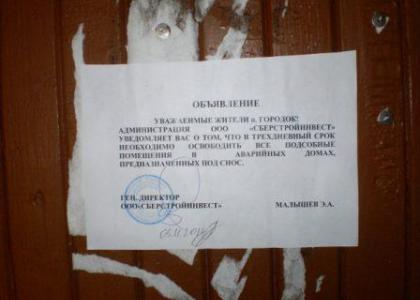 ОБЪЯВЛЕНИЕ
УВАЖАЕМЫЕ ЖИТЕЛИ п. ГОРОДОК!
АДМИНИСТРАЦИЯ ООО «СБЕРСТРОЙИНВЕСТ»
УВЕДОМЛЯЕТ ВАС О ТОМ, ЧТО В ТРЕХДНЕВНЫЙ СРОК
НЕОБХОДИМО ОСВОБОДИТЬ ВСЕ ПОДСОБНЫЕ
ПОМЕЩЕНИЯ В АВАРИЙНЫХ ДОМАХ,
ПРЕДНАЗНАЧЕННЫХ ПОД СНОС.
ГЕН. ДИРЕКТОР
ООО«СБЕРСТРОЙИНВЕСТ» МАЛЫШЕВ Э.А.